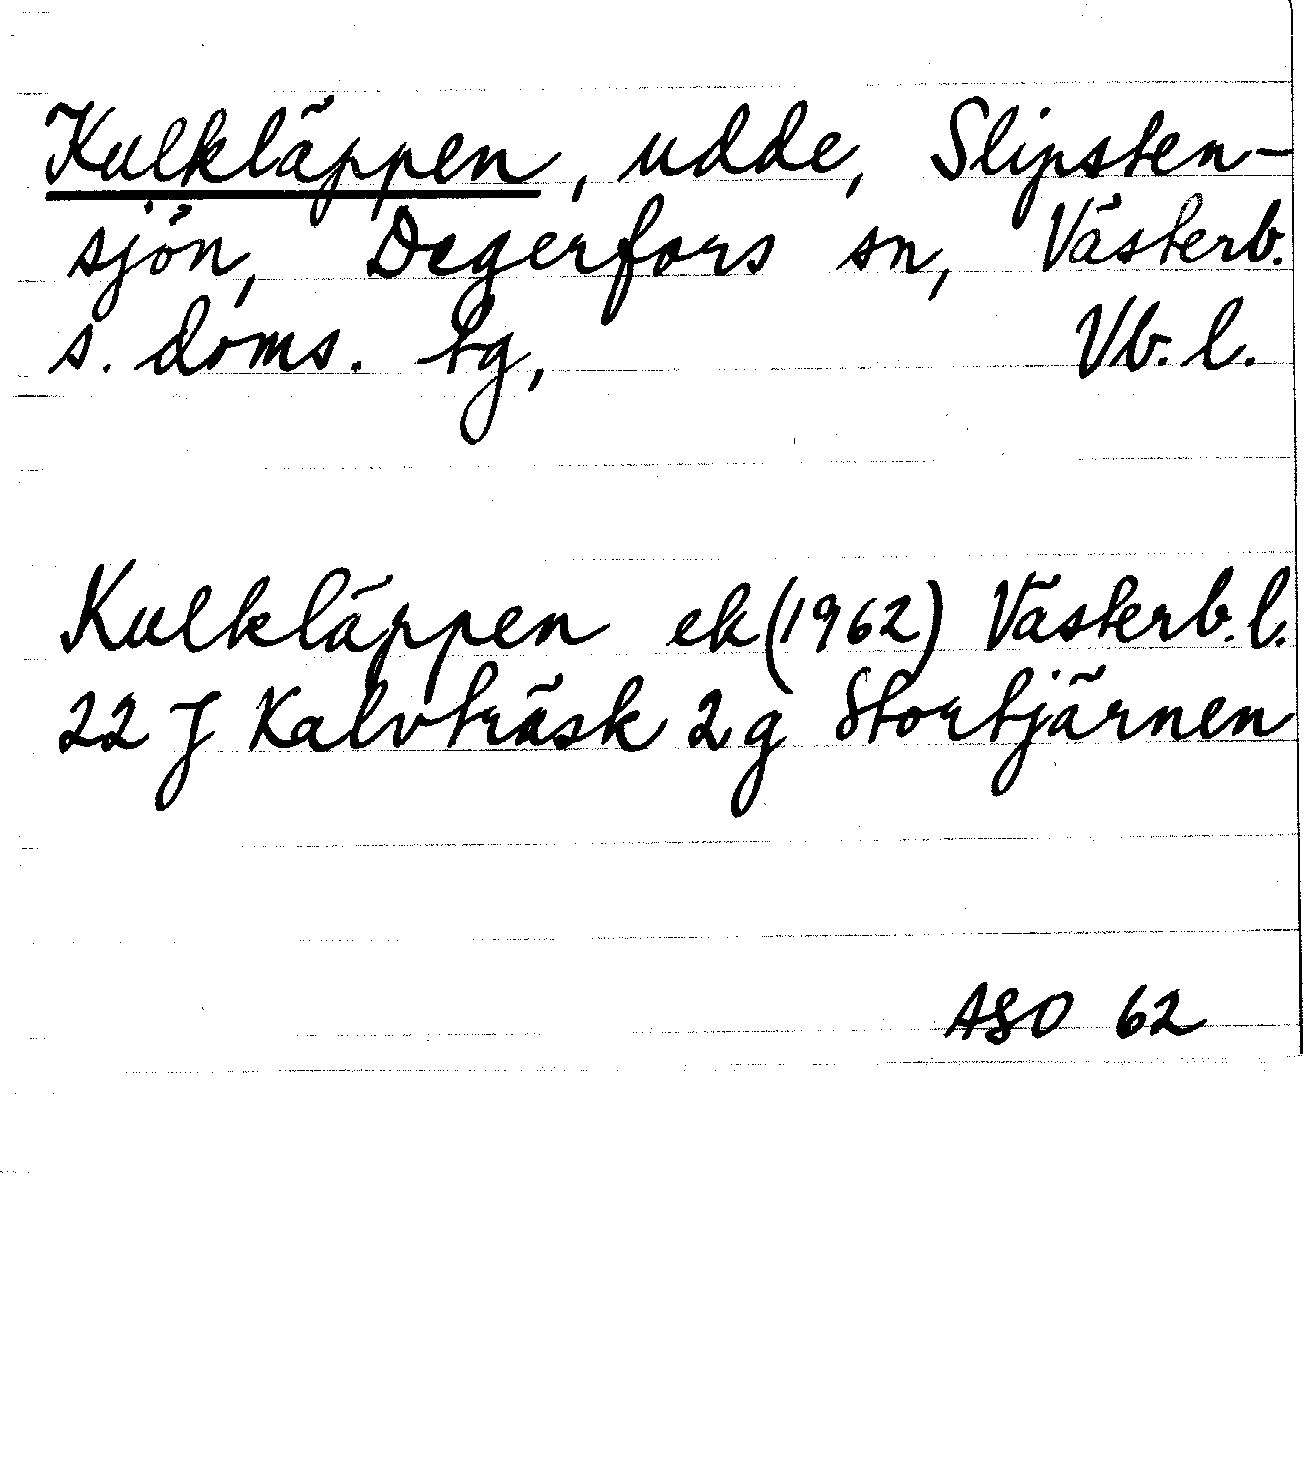 Kulkläppen, udde, Slipsten-
sjön, Degerfors sn, Västerb.
s. doms. tg, Vb. l.
Kulkläppen ek (1962) Västerb. l.
22 J Kalvträsk 2 g Stortjärnen
ASO 62